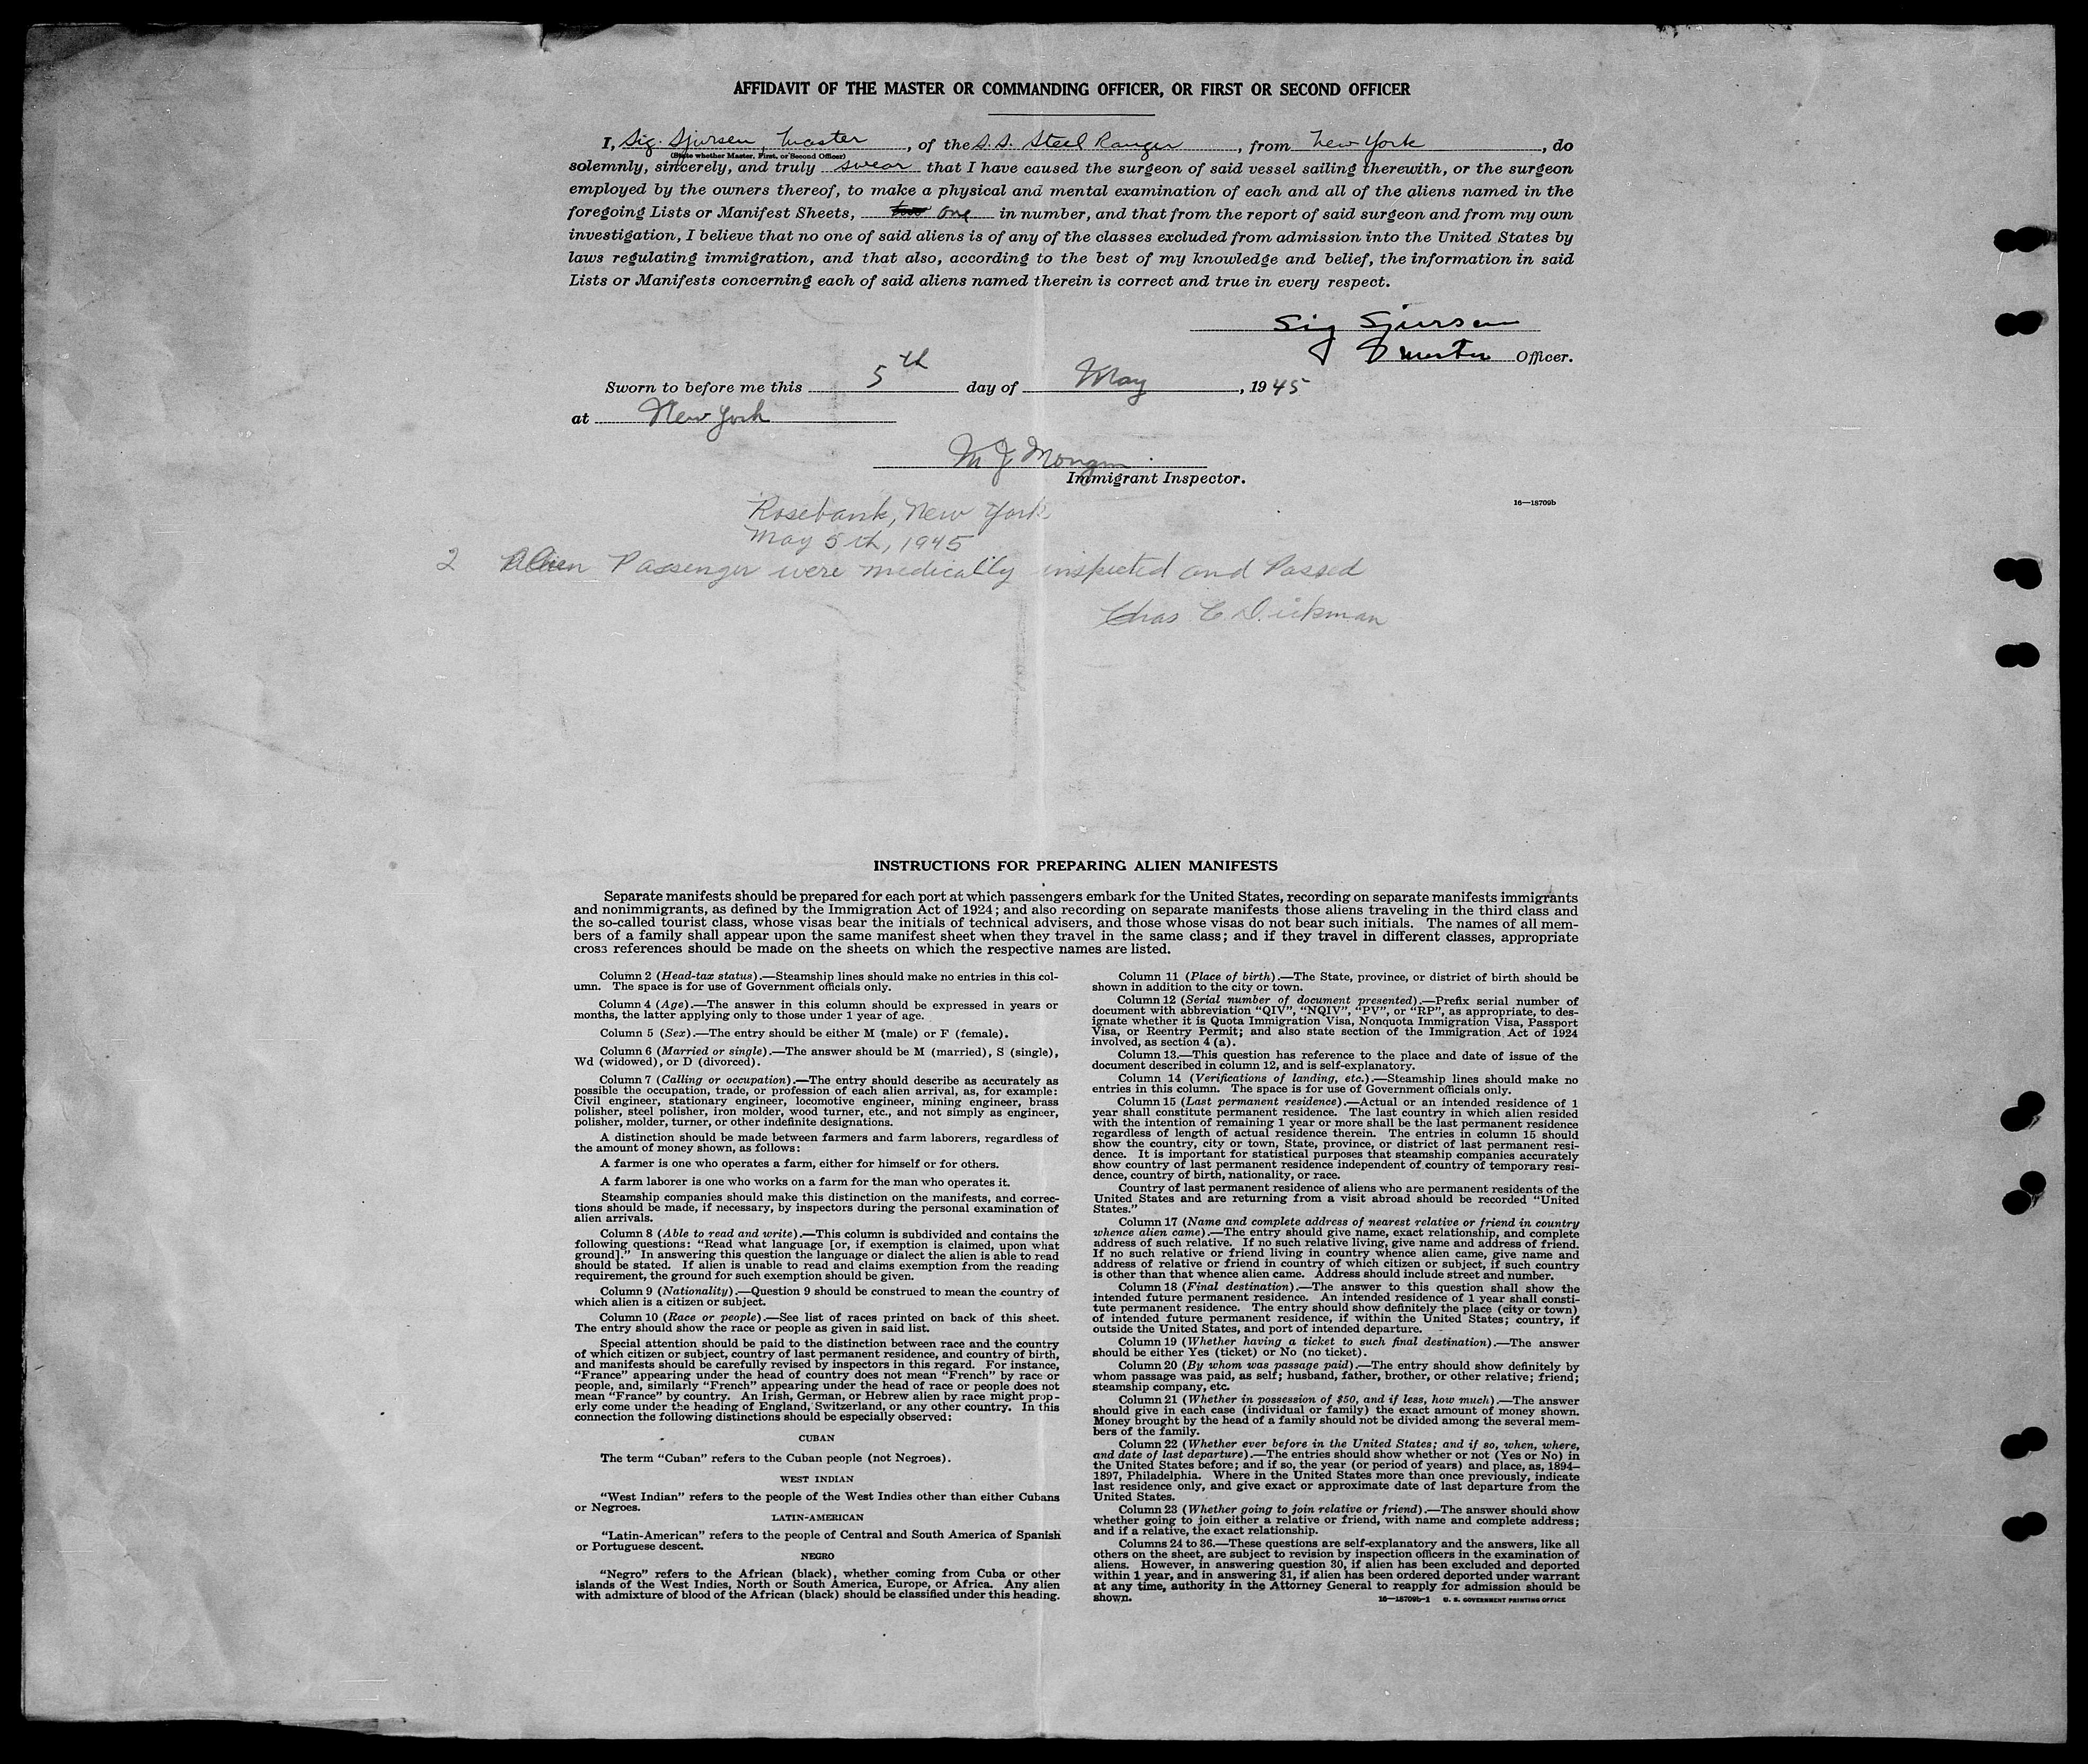 AFFIDAVIT OF THE MASTER OR COMMANDING OFFICER, OR FIRST OR SECOND OFFICER
I, Sig. Sjursen, Master, of the S.S. Steel Ranger, from New York, do
(State whether Master, First, or Second Officer)
solemnly, sincerely, and truly swear that I have caused the surgeon of said vessel sailing therewith, or the surgeon
employed by the owners thereof, to make a physical and mental examination of each and all of the aliens named in the
foregoing Lists or Manifest Sheets, two one in number, and that from the report of said surgeon and from my own
investigation, I believe that no one of said aliens is of any of the classes excluded from admission into the United States by
laws regulating immigration, and that also, according to the best of my knowledge and belief, the information in said
Lists or Manifests concerning each of said aliens named therein is correct and true in every respect.
Sig Sjursen
Master Officer.
Sworn to before me this 5th day of May, 1945
at New York
M J
Immigrant Inspector.
16—18709b
Rosebank, New York
May 5th, 1945
2 Alien Passenger were medically inspected and Passed
Chas C Dickman
INSTRUCTIONS FOR PREPARING ALIEN MANIFESTS
Separate manifests should be prepared for each port at which passengers embark for the United States, recording on separate manifests immigrants
and nonimmigrants, as defined by the Immigration Act of 1924; and also recording on separate manifests those aliens traveling in the third class and
the so-called tourist class, whose visas bear the initials of technical advisers, and those whose visas do not bear such initials. The names of all mem-
bers of a family shall appear upon the same manifest sheet when they travel in the same class; and if they travel in different classes, appropriate
cross references should be made on the sheets on which the respective names are listed.
Column 2 (Head-tax status).—Steamship lines should make no entries in this col-
umn. The space is for use of Government officials only.
Column 4 (Age).—The answer in this column should be expressed in years or
months, the latter applying only to those under 1 year of age.
Column 5 (Sex).—The entry should be either M (male) or F (female).
Column 6 (Married or single).—The answer should be M (married), S (single),
Wd (widowed), or D (divorced).
Column 7 (Calling or occupation).—The entry should describe as accurately as
possible the occupation, trade, or profession of each alien arrival, as, for example:
Civil engineer, stationary engineer, locomotive engineer, mining engineer, brass
polisher, steel polisher, iron molder, wood turner, etc., and not simply as engineer,
polisher, molder, turner, or other indefinite designations.
A distinction should be made between farmers and farm laborers, regardless of
the amount of money shown, as follows:
A farmer is one who operates a farm, either for himself or for others.
A farm laborer is one who works on a farm for the man who operates it.
Steamship companies should make this distinction on the manifests, and correc-
tions should be made, if necessary, by inspectors during the personal examination of
alien arrivals.
Column 8 (Able to read and write).—This column is subdivided and contains the
following questions: "Read what language [or, if exemption is claimed, upon what
ground]." In answering this question the language or dialect the alien is able to read
should be stated. If alien is unable to read and claims exemption from the reading
requirement, the ground for such exemption should be given.
Column 9 (Nationality).—Question 9 should be construed to mean the country of
which alien is a citizen or subject.
Column 10 (Race or people).—See list of races printed on back of this sheet.
The entry should show the race or people as given in said list.
Special attention should be paid to the distinction between race and the country
of which citizen or subject, country of last permanent residence, and country of birth,
and manifests should be carefully revised by inspectors in this regard. For instance,
"France" appearing under the head of country does not mean "French" by race or
people, and, similarly "French" appearing under the head of race or people does not
mean "France" by country. An Irish, German, or Hebrew alien by race might prop-
erly come under the heading of England, Switzerland, or any other country. In this
connection the following distinctions should be especially observed:
CUBAN
The term "Cuban" refers to the Cuban people (not Negroes).
WEST INDIAN
"West Indian" refers to the people of the West Indies other than either Cubans
or Negroes.
LATIN-AMERICAN
"Latin-American" refers to the people of Central and South America of Spanish
or Portuguese descent.
NEGRO
"Negro" refers to the African (black), whether coming from Cuba or other
islands of the West Indies, North or South America, Europe, or Africa. Any alien
with admixture of blood of the African (black) should be classified under this heading.
Column 11 (Place of birth).—The State, province, or district of birth should be
shown in addition to the city or town.
Column 12 (Serial number of document presented).—Prefix serial number of
document with abbreviation "QIV", "NQIV", "PV", or "RP", as appropriate, to des-
ignate whether it is Quota Immigration Visa, Nonquota Immigration Visa, Passport
Visa, or Reentry Permit; and also state section of the Immigration Act of 1924
involved, as section 4 (a).
Column 13.—This question has reference to the place and date of issue of the
document described in column 12, and is self-explanatory.
Column 14 (Verifications of landing, etc.).—Steamship lines should make no
entries in this column. The space is for use of Government officials only.
Column 15 (Last permanent residence).—Actual or an intended residence of 1
year shall constitute permanent residence. The last country in which alien resided
with the intention of remaining 1 year or more shall be the last permanent residence
regardless of length of actual residence therein. The entries in column 15 should
show the country, city or town, State, province, or district of last permanent resi-
dence. It is important for statistical purposes that steamship companies accurately
show country of last permanent residence independent of country of temporary resi-
dence, country of birth, nationality, or race.
Country of last permanent residence of aliens who are permanent residents of the
United States and are returning from a visit abroad should be recorded "United
States."
Column 17 (Name and complete address of nearest relative or friend in country
whence alien came).—The entry should give name, exact relationship, and complete
address of such relative. If no such relative living, give name and address of friend.
If no such relative or friend living in country whence alien came, give name and
address of relative or friend in country of which citizen or subject, if such country
is other than that whence alien came. Address should include street and number.
Column 18 (Final destination).—The answer to this question shall show the
intended future permanent residence. An intended residence of 1 year shall consti-
tute permanent residence. The entry should show definitely the place (city or town)
of intended future permanent residence, if within the United States; country, if
outside the United States, and port of intended departure.
Column 19 (Whether having a ticket to such final destination).—The answer
should be either Yes (ticket) or No (no ticket).
Column 20 (By whom was passage paid).—The entry should show definitely by
whom passage was paid, as self; husband, father, brother, or other relative; friend;
steamship company, etc.
Column 21 (Whether in possession of $50, and if less, how much).—The answer
should give in each case (individual or family) the exact amount of money shown.
Money brought by the head of a family should not be divided among the several mem-
bers of the family.
Column 22 (Whether ever before in the United States; and if so, when, where,
and date of last departure).—The entries should show whether or not (Yes or No) in
the United States before; and if so, the year (or period of years) and place, as, 1894–
1897, Philadelphia. Where in the United States more than once previously, indicate
last residence only, and give exact or approximate date of last departure from the
United States.
Column 23 (Whether going to join relative or friend).—The answer should show
whether going to join either a relative or friend, with name and complete address;
and if a relative, the exact relationship.
Columns 24 to 36.—These questions are self-explanatory and the answers, like all
others on the sheet, are subject to revision by inspection officers in the examination of
aliens. However, in answering question 30, if alien has been excluded and deported
within 1 year, and in answering 31, if alien has been ordered deported under warrant
at any time, authority in the Attorney General to reapply for admission should be
shown.
16—18709b-1 U. S. GOVERNMENT PRINTING OFFICE